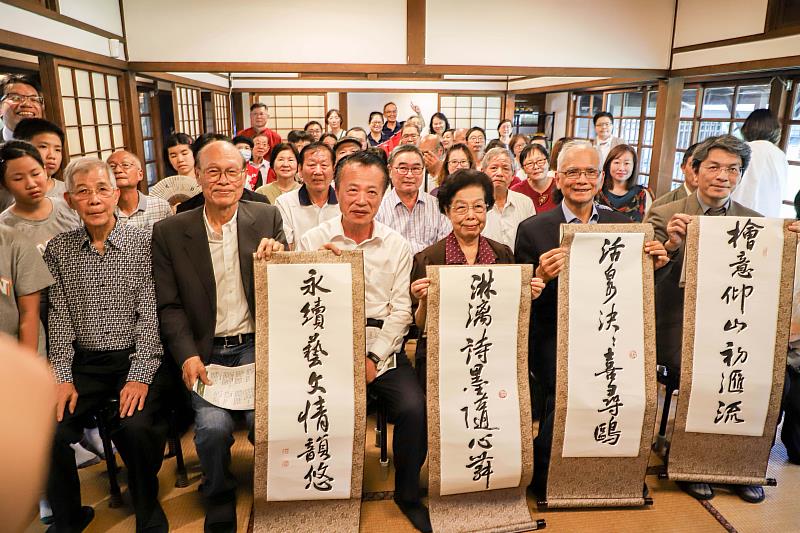 檜意仰山初滙流
活泉泱〻喜尋鷗
淋漓詩墨隨心舞
永續藝文情韻悠